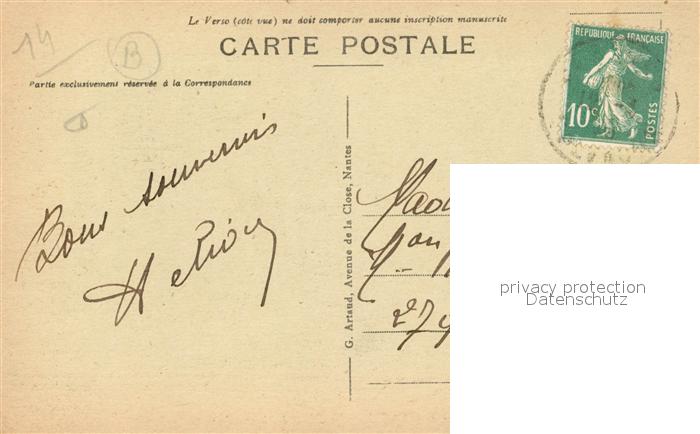 Le Verso (côté vue) ne doit comporter aucune inscription manuscrite
CARTE POSTALE
Partie exclusivement réservée à la Correspondance
14
B
REPUBLIQUE FRANÇAISE
10c
POSTES
Bons souvenirs
G. Artaud, Avenue de la Close, Nantes
27
privacy protection
Datenschutz